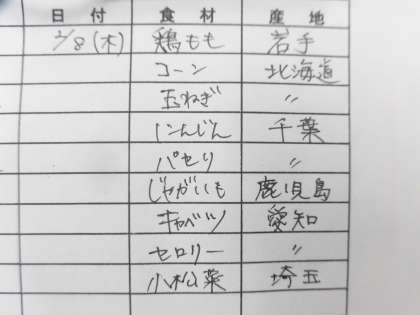 日付 食材 産地
2/8(木) 鶏もも 岩手
コーン 北海道
玉ねぎ 〃
にんじん 千葉
パセリ 〃
じゃがいも 鹿児島
キャベツ 愛知
セロリー 〃
小松菜 埼玉